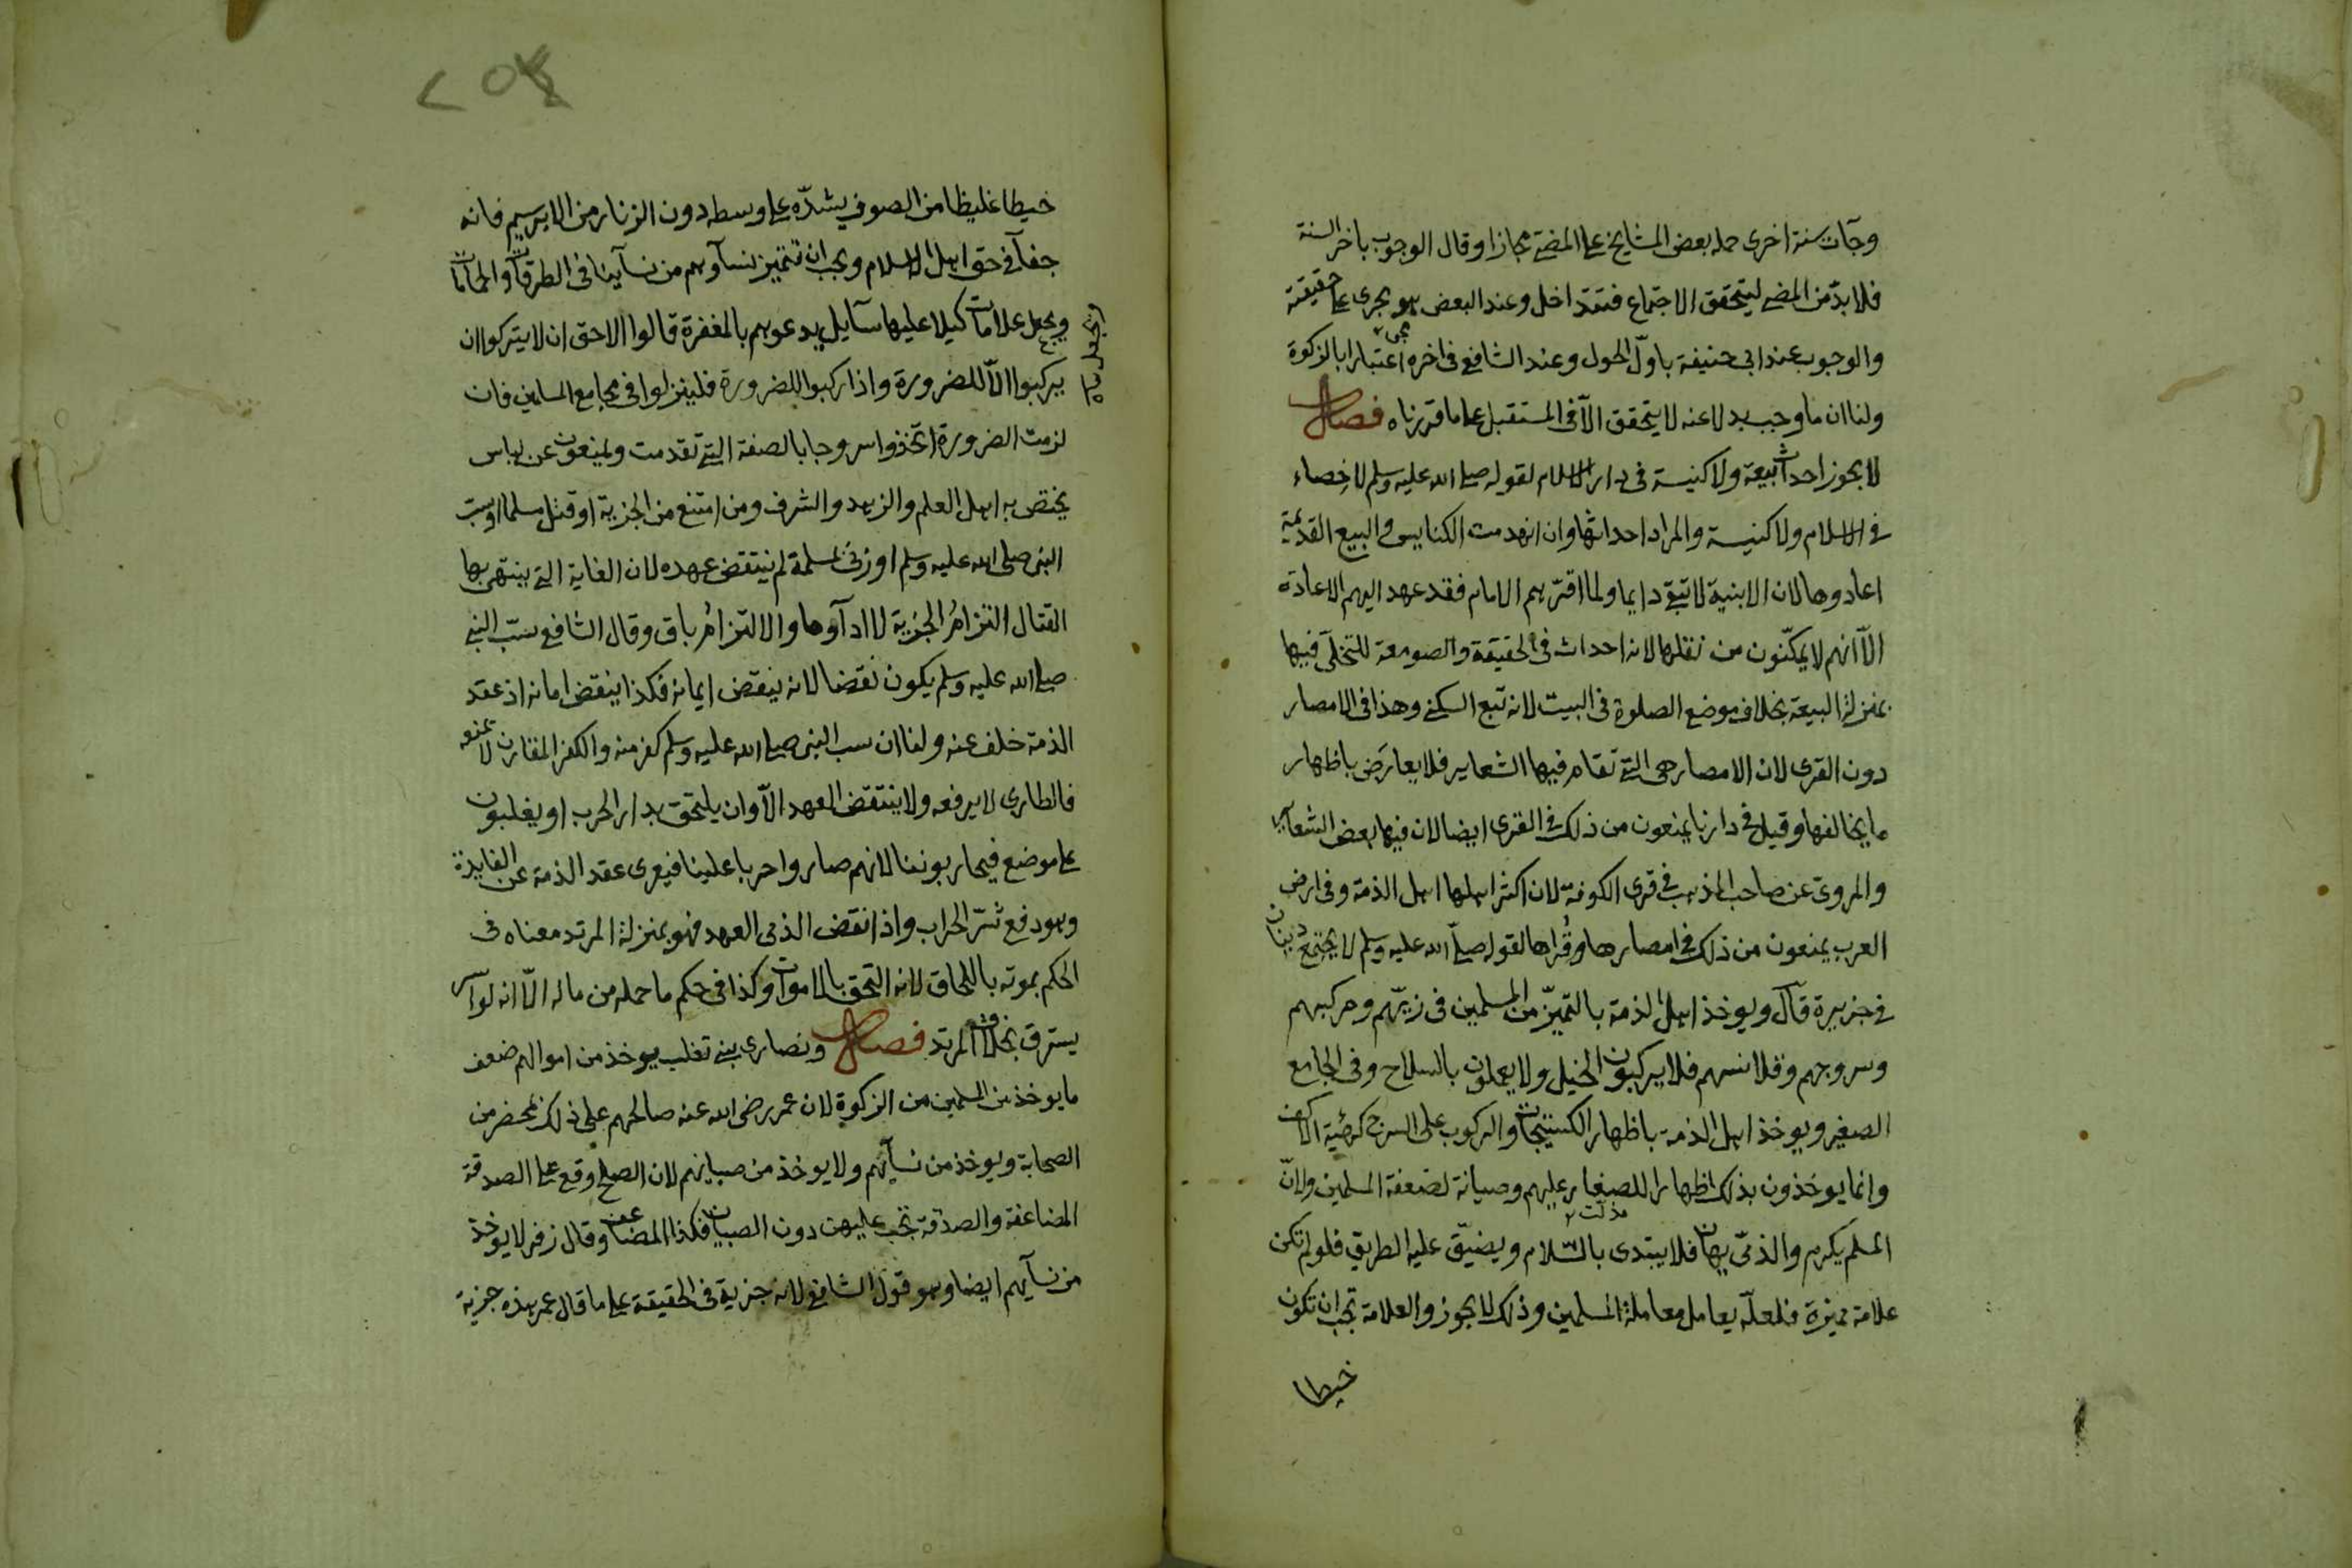 وجآت سنة اخرى حمله بعض المشايخ على المضي مجازا وقال الوجوب باخر السنة
فلا بدّ من المضى ليتحقق الاجتماع فتتداخل وعند البعض هو مجرى على حقيقته
والوجوب عند ابى حنيفة باوّل الحول وعند الشافعى فى اخره اعتبارا بالزكوة
ولنا ان ما وجب بدلا عنه لا يتحقق الاّ فى المستقبل على ما قررناه فصل
لا يجوز احداث بيعة ولا كنيسة فى دار الاسلام لقوله صلى الله عليه وسلم لا خصاء
فى الاسلام ولا كنيسة والمراد احداثها وان انهدمت الكنايس والبيع القديمة
اعادوها لان الابنية لا تبقى دايما ولما اقرّهم الامام فقد عهد اليهم الاعادة
الاّ انهم لا يمكّنون من نقلها لانه احداث فى الحقيقة والصومعة للتخلّى فيها
بمنزلة البيعة بخلاف موضع الصلوة فى البيت لانه تبع السكنى وهذا فى الامصار
دون القرى لان الامصار هى التى تقام فيها الشعاير فلا يعارَض باظهار
ما يخالفها وقيل فى دارنا يمنعون من ذلك فى القرى ايضا لان فيها بعض الشعآير
والمروىّ عن صاحب المذهب فى قرى الكوفة لان اكثر اهلها اهل الذمة وفى ارض
العرب يمنعون من ذلك فى امصارها وقُراها لقوله صلىّ الله عليه وسلم لا يجتمع دينان
فى جزيرة قال ويوخذ اهل الذمة بالتميّز من المسلمين فى زيّهم ومركبهم
وسروجهم وقلانسهم فلا يركبون الخيل ولا يعملون بالسلاح وفى الجامع
الصغير ويوخذ اهل الذمة باظهار الكستيجات والركوب على السرج كهئية الاكف
وانما يوخذون بذلك اظهارا للصغار عليهم وصيانة لضعفة المسلمين ولانّ
المسلم يكرم والذمّى يهان فلا يبتدى بالسّلام ويضيّق عليه الطريق فلو لم تكن
علامة مميزة فلعلّه يعامل معاملة المسلمين وذلك لا يجوز والعلامة تجب ان تكون
خيطا
خيطا غليظا من الصوف يشدّه على وسطه دون الزنار من الابريسم فانه
جفآ فى حق اهل الاسلام ويجب ان تتميز نسآوهم من نسآينا فى الطرقات والحمامات
ويجعل علامات كيلا عليها سآيل يدعو لهم بالمغفرة قالوا الاحق ان لا يتركوا ان
يركبوا الاّ للضرورة واذا ركبوا للضرورة فلينزلوا فى مجامع المسلمين فان
لزمت الضرورة اتخذوا سروجا بالصفة التى تقدمت ويمنعون عن لباس
يختص به اهل العلم والزهد والشرف ومن امتنع من الجزية او قتل مسلما او سبّ
النبى صلى الله عليه وسلم او زنى بمسلمة لم ينتقض عهده لان الغاية التى ينتهى بها
القتال التزامُ الجزية لا ادآوها والالتزامُ باق وقال الشافعى سبّ النبى
صلى الله عليه وسلم يكون نقضا لانه ينقض ايمانه فكذا ينقض امانه اذ عقد
الذمة خلف عنه ولنا ان سب النبى صلى الله عليه وسلم كفر منه والكفر المقارن لا يمنعه
فالطارى لا يرفعه ولا ينتقض العهد الاّ وان يلتحق بدار الحرب او يغلبون
على موضع فيحاربوننا لانهم صاروا حربا علينا فيعرى عقد الذمة عن الفايدة
وهو دفع شرّ الحراب واذا نقض الذمى العهد فهو بمنزلة المرتد معناه فى
الحكم بموته باللحاق لانه التحق بالاموات وكذا فى حكم ما حمله من ماله الاّ انه لو اسر
يسترق بخلاف المرتد فصل ونصارى بنى تغلب يوخذ من اموالهم ضعف
ما يوخذ من المسلمين من الزكوة لان عمر رضى الله عنه صالحهم على ذلك بمحضر من
الصحابة ويوخذ من نسآئهم ولا يوخذ من صبيانهم لان الصلح وقع على الصدقة
المضاعفة والصدقة تجب عليهن دون الصبيان فكذا المضاعف وقال زفر لا يوخذ
من نسآيهم ايضا وهو قول الشافعى لانه جزية فى الحقيقة على ما قال عمر هذه جزية